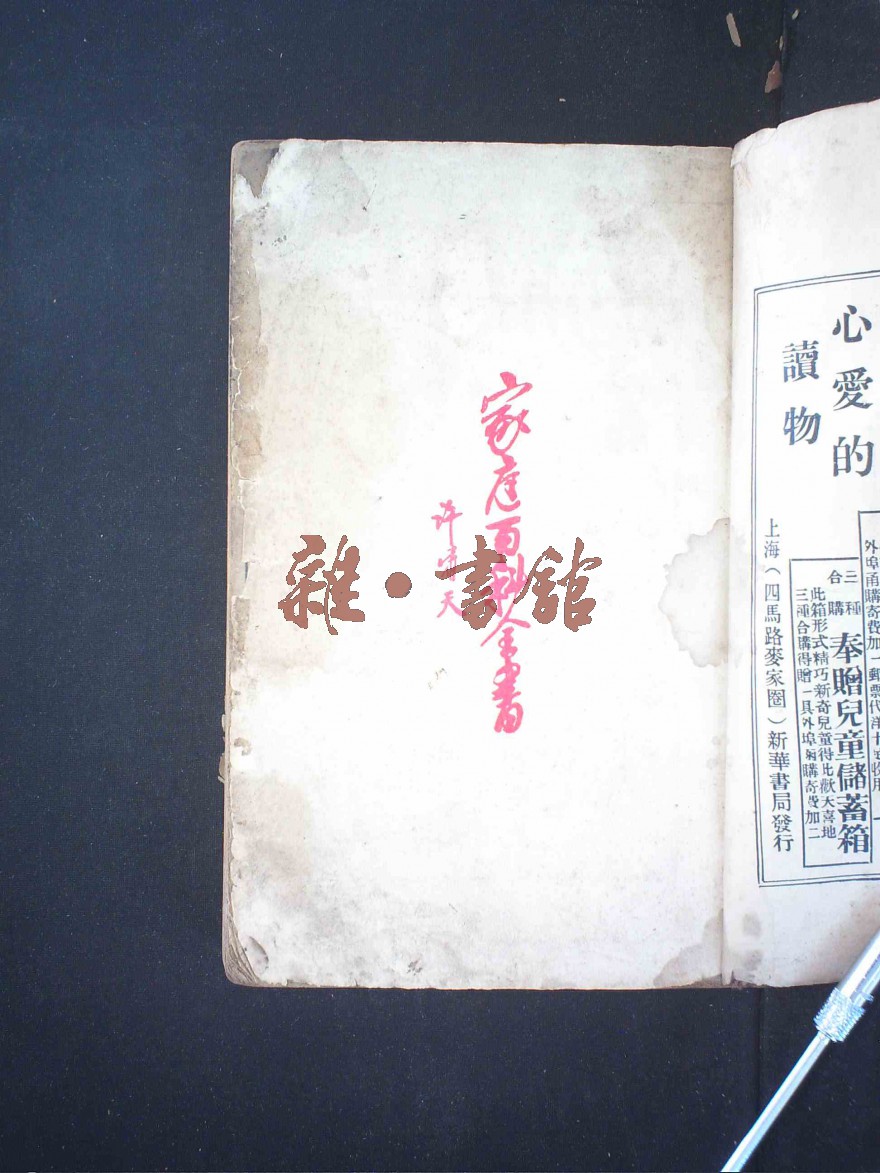 心愛的
讀物
外埠函購寄費加一郵票代洋十足收用
三種合購
奉贈兒童儲蓄箱
此箱形式精巧新奇兒童得此歡天喜地
三種合購得贈一具外埠函購寄費加二
上海（四馬路麥家圈）新華書局發行
家庭百科全書
许啸天
雜·書館